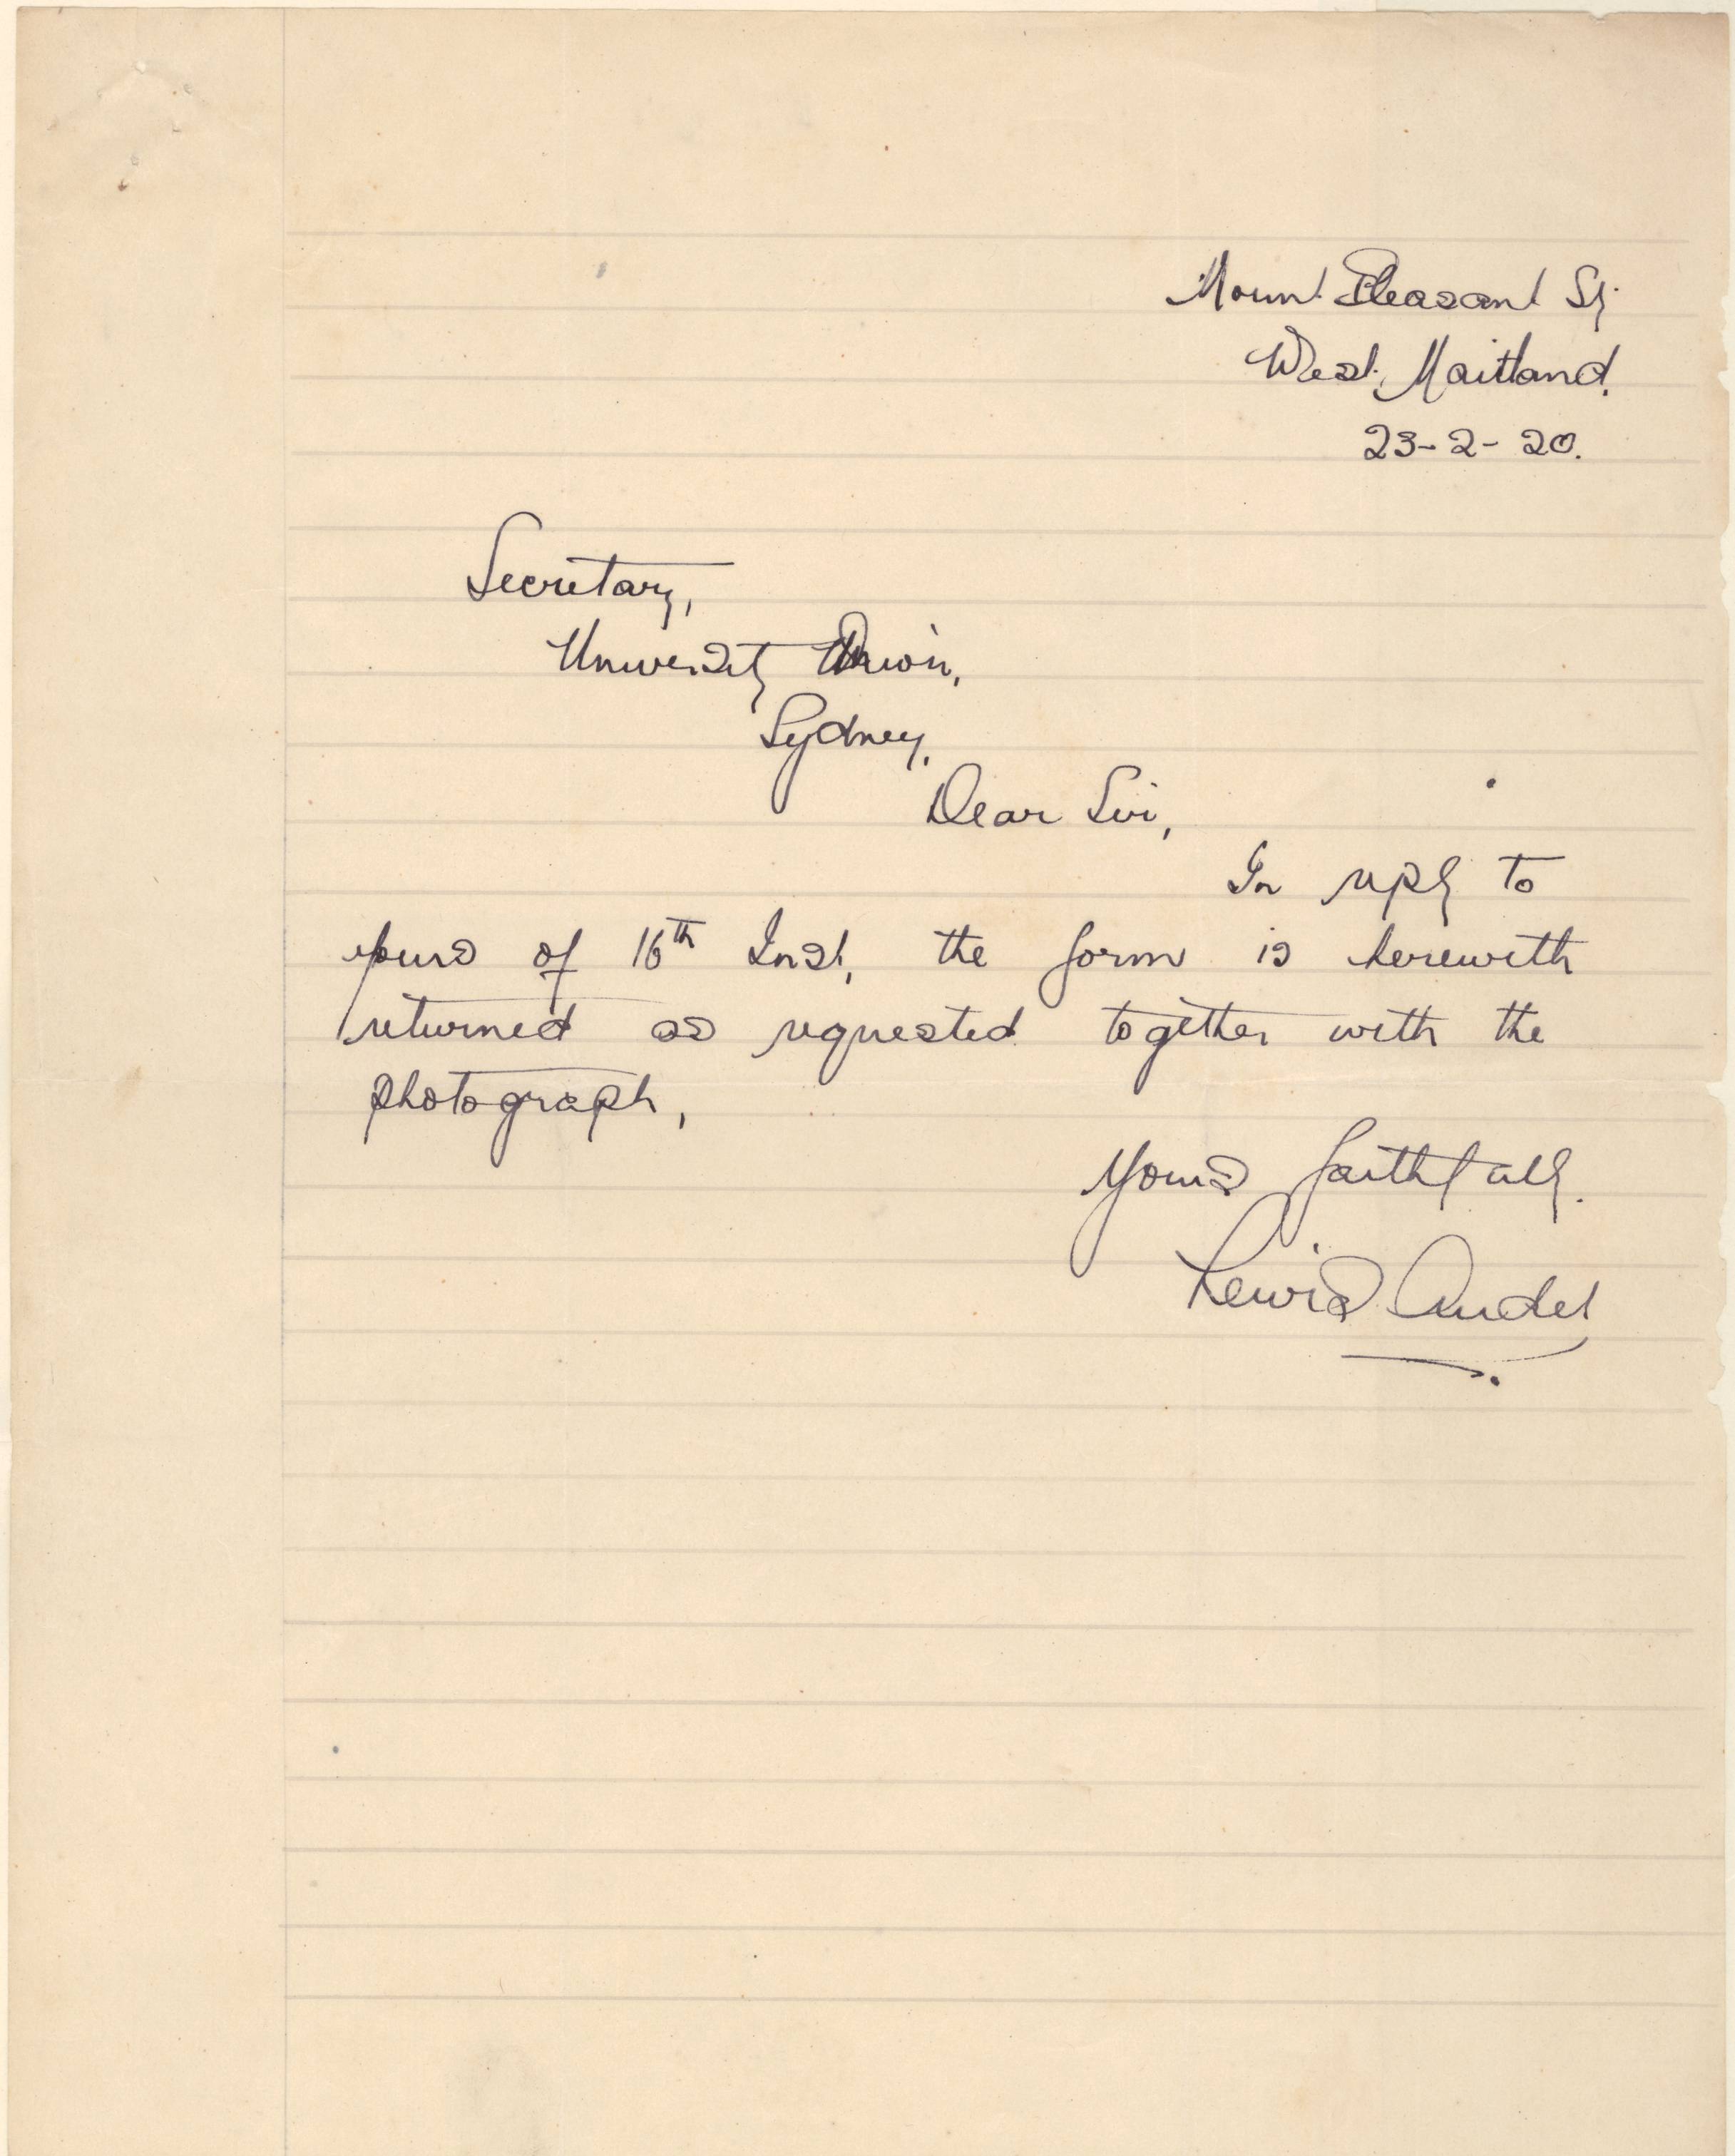 Mount Pleasant St
West Maitland.
23-2-20.
Secretary,
University Union,
Sydney.
Dear Sir,
In reply to
yours of 16th Inst, the form is herewith
returned as requested together with the
photograph,
Yours faithfully.
Lewis